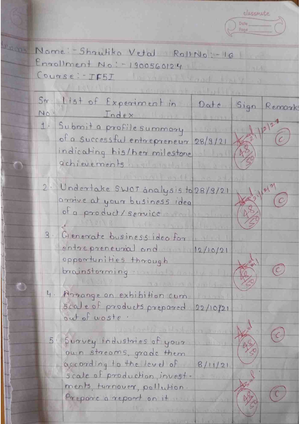 Name:- Shrutika Vetal Roll No:- 76
Enrollment No:- 1900560124
Course:- IF5I
Sr No. List of Experiment in Index Date Sign Remark
1. Submit a profile summary
of a Successful entrepreneur 28/9/21
indicating his/her milestone
achievements.
2. Undertake SWOT analysis to 28/9/21
arrive at your business idea
of a product/service
3. Generate business idea for
entrepreneural and 12/10/21
opportunities through
brainstorming
4. Arrange an exhibition cum
scale of products prepared 22/10/21
out of waste.
5. Survey industries of your
own streams, grade them
according to the level of 8/11/21
scale of production, invest-
ments, turnover, pollution
Prepare a report on it